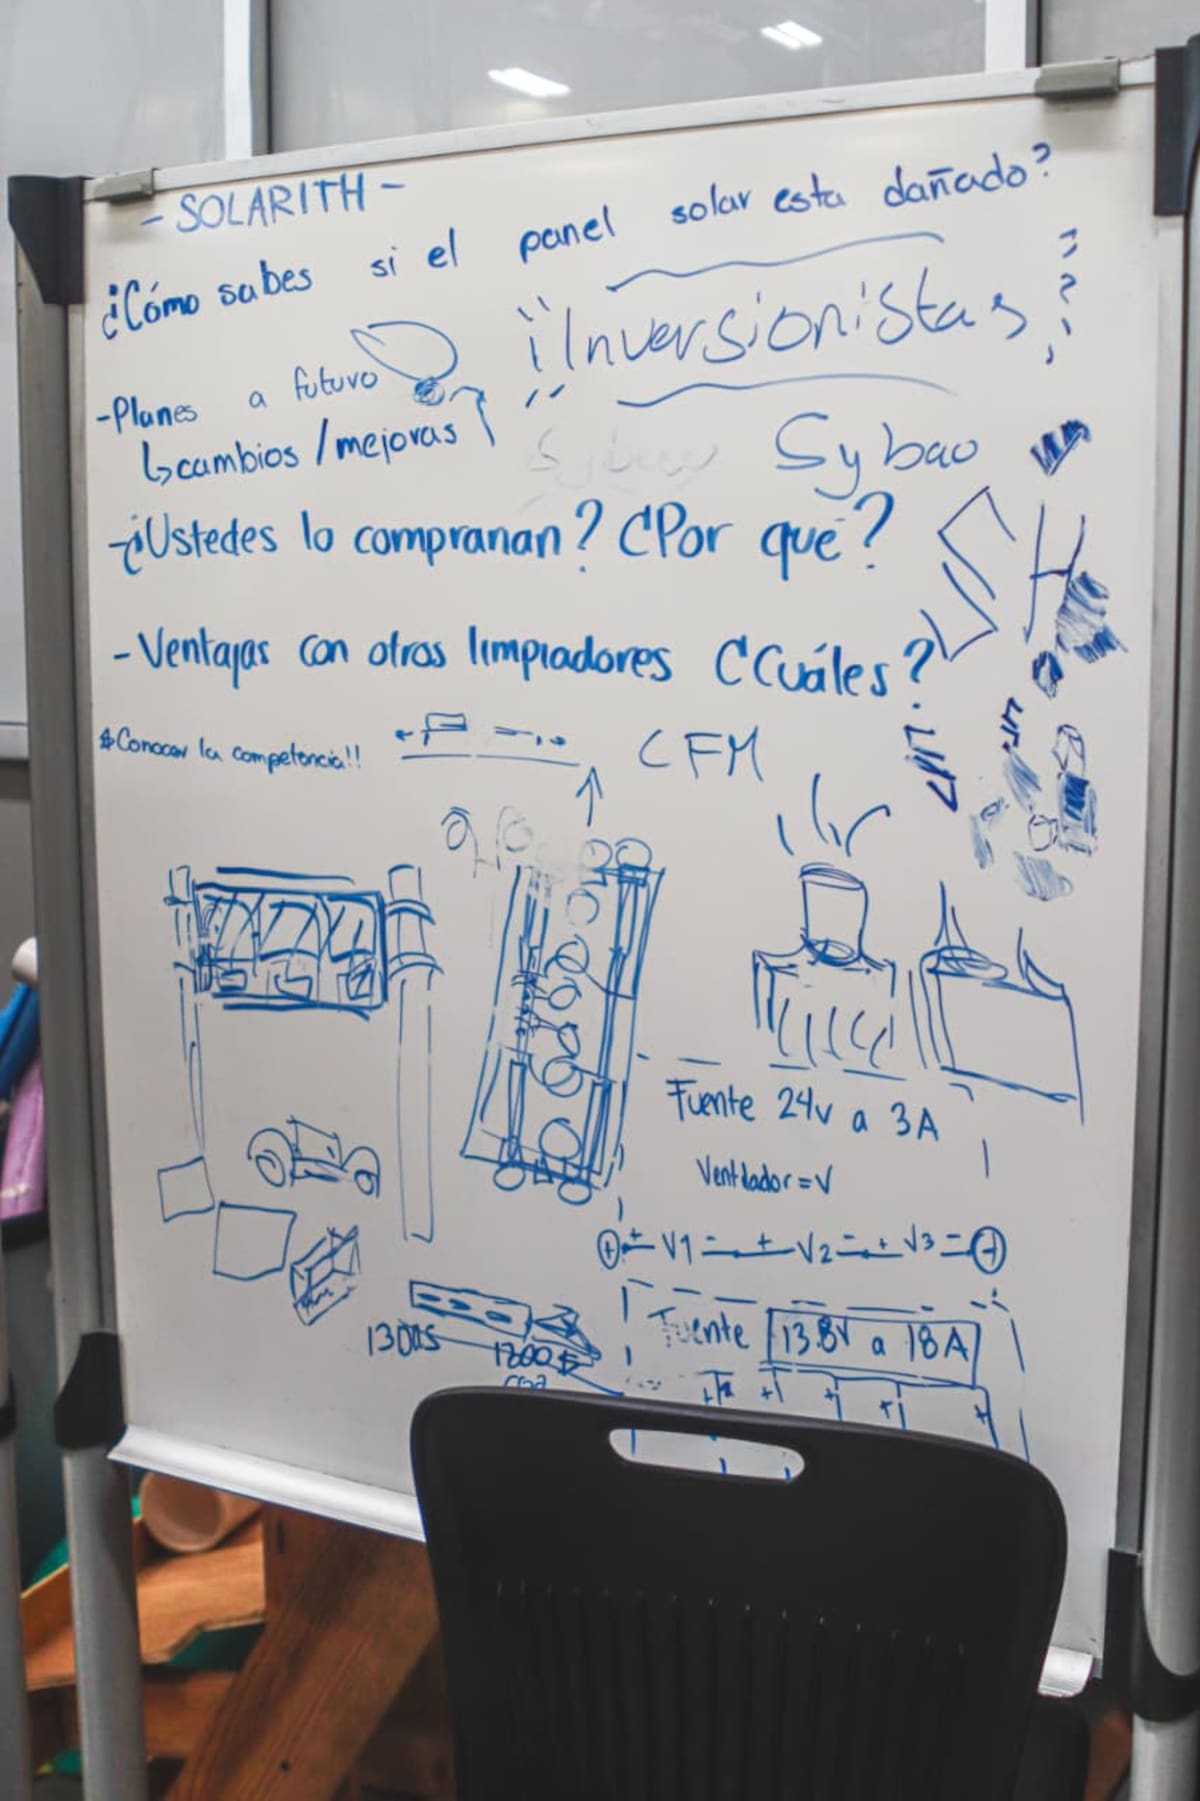 - SOLARITH -
¿Cómo sabes si el panel solar esta dañado?
¡¡Inversionistas
-Planes a futuro
↳cambios /mejoras
Sybao
-¿Ustedes lo compranan? ¿Por que?
- Ventajas con otros limpiadores ¿Cuáles?
Conocer la competencia!!
CFM
Fuente 24v a 3A
Ventilador = V
+ + V1 - + V2 - + V3 -
Fuente 13.8V a 18A
1300$
1200$